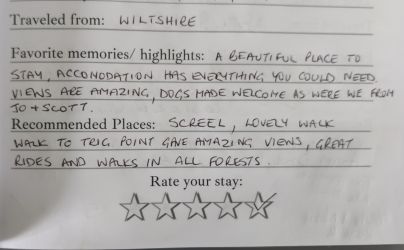 Traveled from: WILTSHIRE
Favorite memories/ highlights: A BEAUTIFUL PLACE TO
STAY, ACCONODATION HAS EVERYTHING YOU COULD NEED.
VIEWS ARE AMAZING, DOGS MADE WELCOME AS WERE WE FROM
JO + SCOTT.
Recommended Places: SCREEL, LOVELY WALK
WALK TO TRIG POINT GAVE AMAZING VIEWS, GREAT
RIDES AND WALKS IN ALL FORESTS.
Rate your stay: